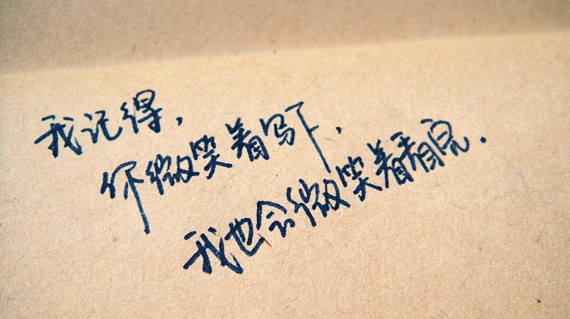 我记得，
你微笑着写下，
我也会微笑着看完．